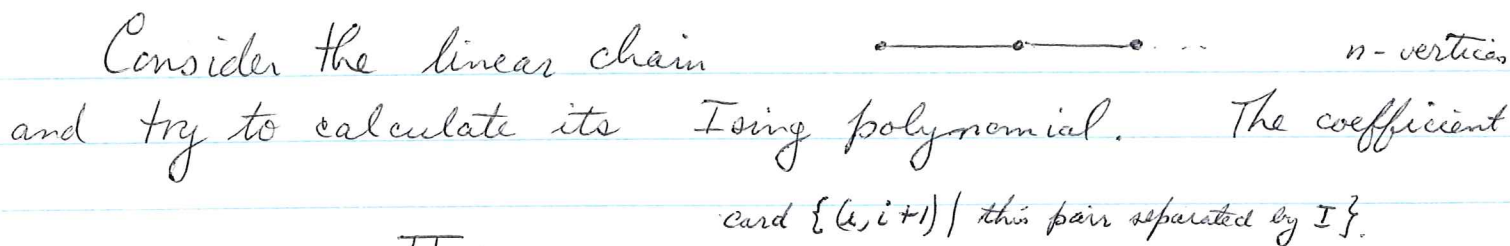 Consider the linear chain ... n-vertices
and try to calculate its Ising polynomial. The coefficient
card { (i, i+1) | this pair separated by I }.